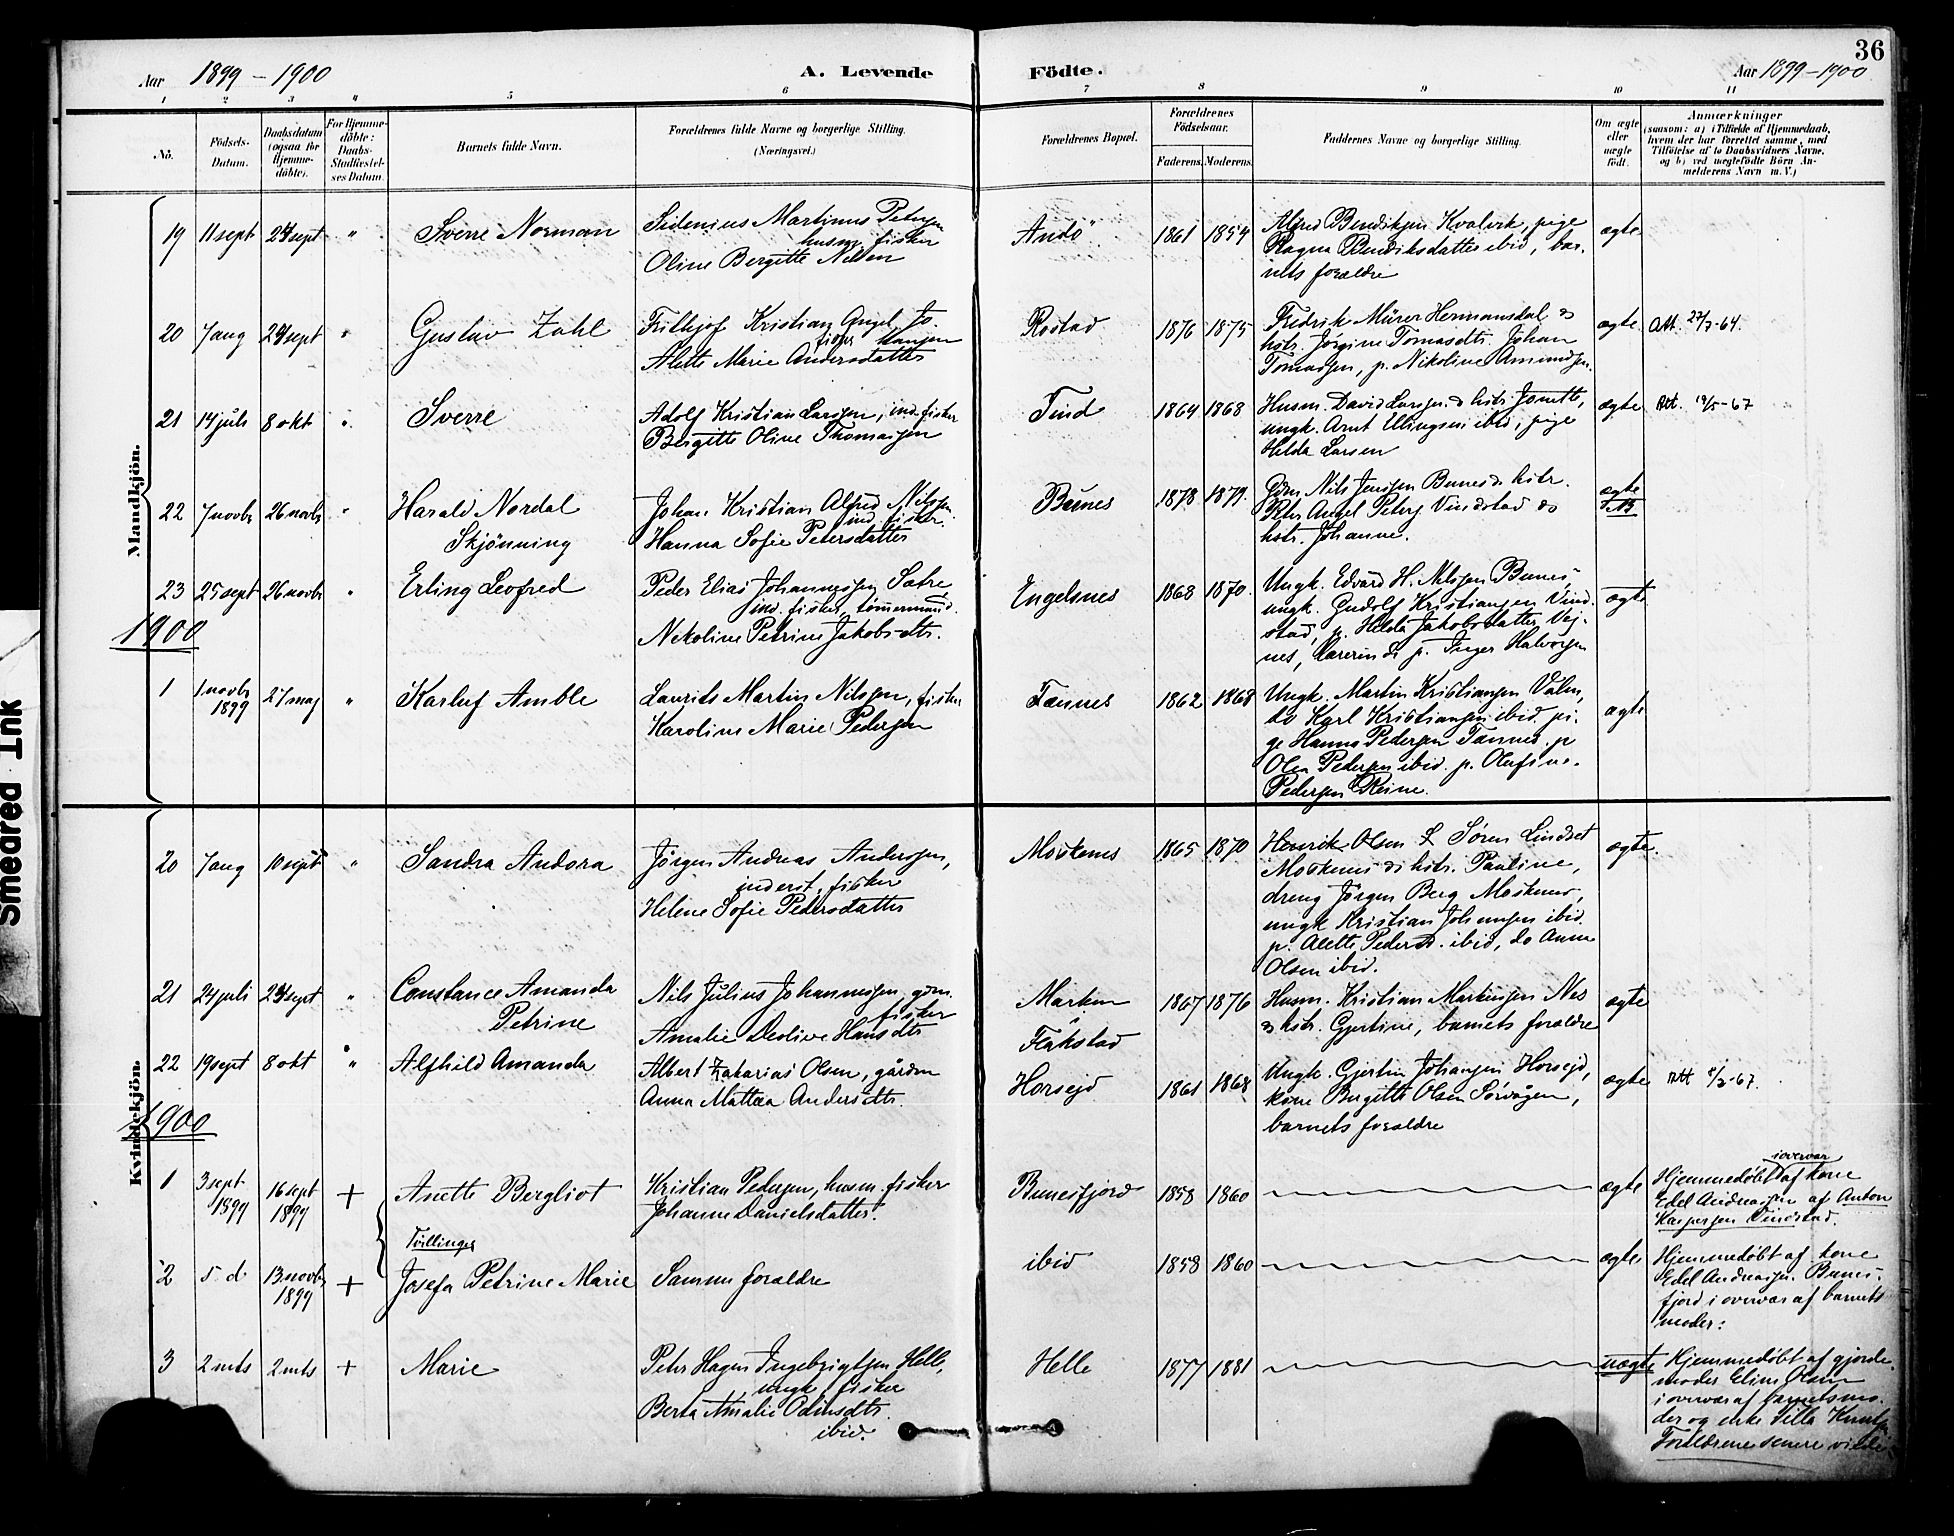 36
Aar 1899 - 1900
A. Levende Födte.
Aar 1899 - 1900
1 2 3 4 5 6 7 8 9 10 11
No.
Födsels-Datum.
Daabsdatum (ogsaa for Hjemme-döbte).
For Hjemme-döbte: Daabs-Stadfæstel-ses Datum.
Barnets fulde Navn.
Forældrenes fulde Navne og borgerlige Stilling.
(Næringsvei.)
Forældrenes Bopæl.
Forældrenes Födselsaar.
Faderens. Moderens.
Faddernes Navne og borgerlige Stilling.
Om ægte eller uægte födt.
Anmærkninger
(saasom: a) i Tilfælde af Hjemmedaab,
hvem der har forrettet samme, med
Tilföielse af to Daabsvidners Navne,
og b) ved uægtefödte Börn An-
melderens Navn m. V.)
Mandkjön.
19 11 sept 24 sept " Sverre Norman
Sidenius Martinus Petersen
husm. fisker
Oline Bergitte Nilsen
Andö 1861 1859
Alfred Bendiksen Kvalvik, pige
Ragna Bendiksdatter ibid, bar-
nets forældre
ægte
20 7 aug 24 sept " Gustav Zahl
Frithjof Kristian Angel Jo-
hansen fisker
Alette Marie Andersdatter
Rostad 1876 1875
Fredrik Mürer Hermansdal &
hstr. Jörgine Tomasdtr. Johan
Tomassen, p. Nikoline Amundsen.
ægte Att. 22/3-64.
21 14 juli 8 okt " Sverre
Adolf Kristian Larssen, ind. fisker
Bergitte Oline Thomassen
Tind 1864 1868
Husm. David Larssen & hstr. Janette,
ungk. Arnt Ellingsen ibid, pige
Helda Larsen
ægte Att. 19/5-67
22 7 novbr 26 novbr " Harald Nordal
Skjönning
Johan Kristian Alfred Nilssen
ind. fisker.
Hanna Sofie Petersdatter
Bunes 1878 1879.
Gdm Nils Jenssen Bunes & hstr.
Petr. Angel Peters Vindstad &
hstr. Johanne.
ægte
23 25 sept 26 novbr " Erling Leofred
Peder Elias Johannessen Sætre
ind. fisker, tömmermand.
Nikoline Petrine Jakobsdtr.
Engelsnes 1868 1870.
Ungk. Edvard H. Nilssen Bunes,
ungk. Gudolf Kristiansen Vind-
stad, p. Helda Jakobsdatter Vej-
nes, lærerinde p. Inger Halvorsen
ægte
1900
1 1 novbr 1899 27 maj " Karluf Amble
Laurits Martin Nilssen, fisker
Karoline Marie Pedersen
Tennes 1862 1868
Ungk. Martin Kristiansen Valen,
do Karl Kristiansen ibid. pi-
ge Hanna Pedersen Tennes. p
Olea Pedersen ibid. p. Olufine
Pedersen Reine.
ægte
Kvindekjön.
20 7 aug 10 sept " Sandra Andora
Jörgen Andreas Andersen,
inderst, fisker
Helene Sofie Pedersdatter
Moskenes 1865 1870
Henrik Olsen & Sören Lindset
Moskenes & hstr. Pauline,
dreng Jörgen Berg Moskenes,
ungk Kristian Johansen ibid.
p. Alette Pedersd. ibid, do Anna
Olsen ibid.
ægte.
21 24 juli 24 sept " Constance Amanda
Petrine
Nils Julius Johannessen, gdm.
fisker
Amalie Deolive Hansdtr
Marken
Flakstad 1867 1876
Husm. Kristian Markussen Nes
& hstr. Gjertine, barnets forældre
ægte
22 19 sept 8 okt " Alfhild Amanda
Albert Zakarias Olsen, gårdm
Anna Mattea Andersdtr.
Horsejd 1861 1868
Ungk. Gjertin Johansen Horsejd,
kone Bergitte Olsen Sörvågen,
barnets forældre
ægte Att 8/2-67.
1900
1 3 sept 1899 16 sept 1899 + Anette Bergliot
Kristian Pedersen, husm. fisker
Johanne Danielsdatter.
Bunesfjord 1858 1860
ægte
Hjemmedöbt i overvær af kone
Edel Andreassen af Anton
Kaspersen Vindstad.
Tvillinger
2 s. d 13 novbr 1899 + Josefa Petrine Marie
Samme forældre
ibid 1858 1860
ægte
Hjemmedöbt af kone
Edel Andreassen Bunes-
fjord i overvær af barnets
moder.
3 2 mts 2 mts + Marie
Peter Hagen Ingebrigtsen Helle,
ungk. fisker
Berta Amalie Odinsdtr.
ibid.
Helle 1877 1881
uægte
Hjemmedöbt af gjorde-
moder Eline Olsen
i overvær af barnets mo-
der og enke Silla Knuts.
Forældrene senere viede
Smeared Ink